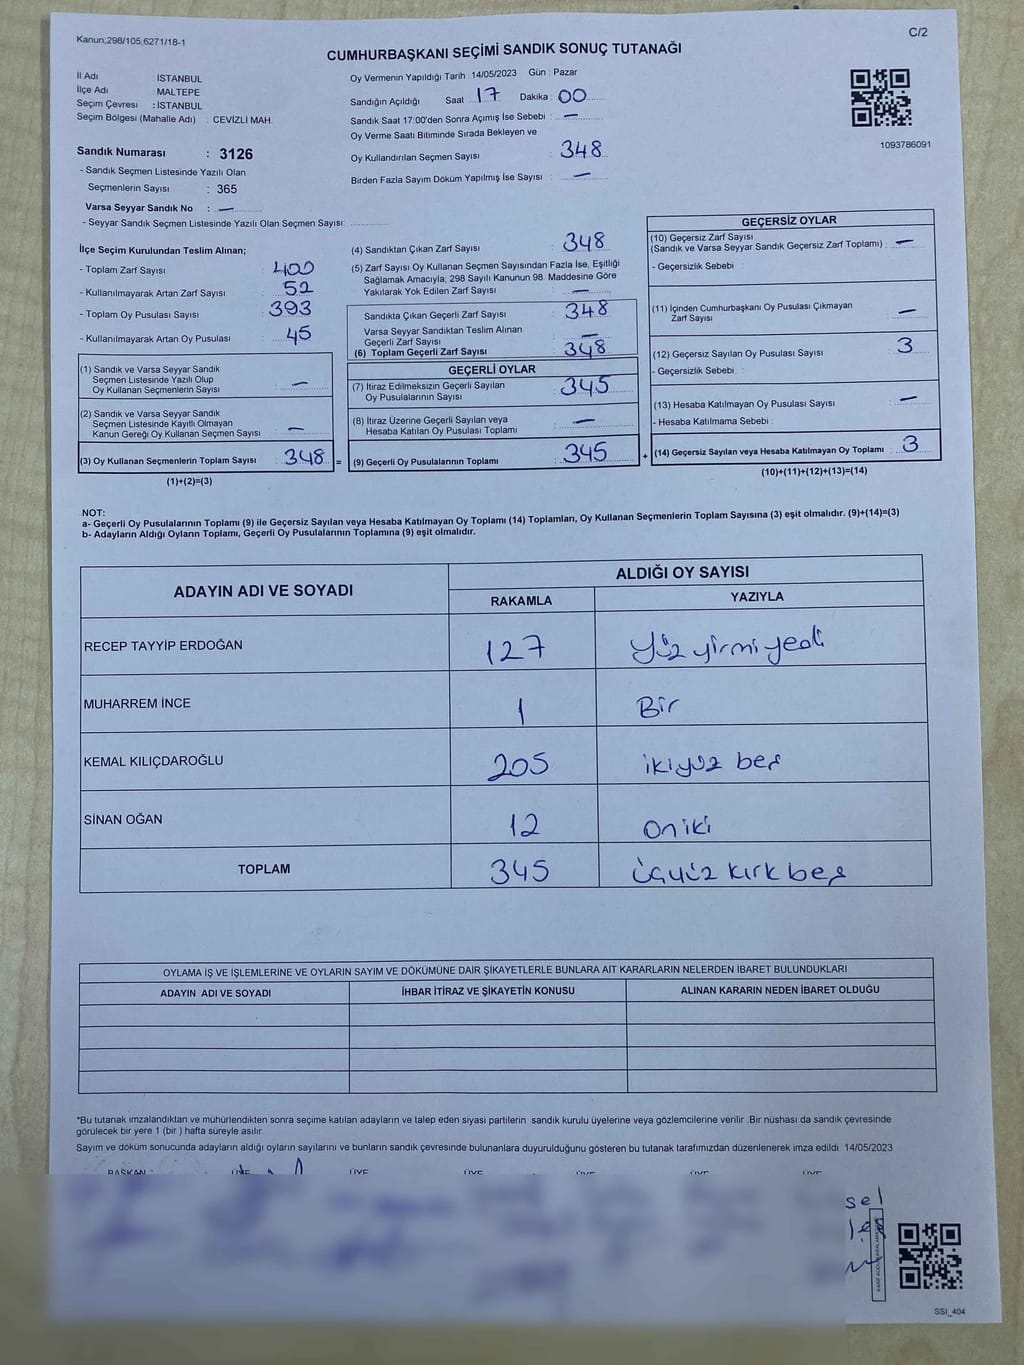 Kanun;298/105,6271/18-1
C/2
CUMHURBAŞKANI SEÇİMİ SANDIK SONUÇ TUTANAĞI
İl Adı : İSTANBUL
İlçe Adı : MALTEPE
Seçim Çevresi : İSTANBUL
Seçim Bölgesi (Mahalle Adı) : CEVİZLİ MAH.
Sandık Numarası : 3126
- Sandık Seçmen Listesinde Yazılı Olan
Seçmenlerin Sayısı : 365
Varsa Seyyar Sandık No : —
- Seyyar Sandık Seçmen Listesinde Yazılı Olan Seçmen Sayısı:
Oy Vermenin Yapıldığı Tarih : 14/05/2023 Gün : Pazar
Sandığın Açıldığı Saat : 17 Dakika : 00
Sandık Saat 17:00'den Sonra Açımış İse Sebebi : —
Oy Verme Saati Bitiminde Sırada Bekleyen ve
Oy Kullandırılan Seçmen Sayısı : 348
Birden Fazla Sayım Döküm Yapılmış İse Sayısı : —
1093786091
İlçe Seçim Kurulundan Teslim Alınan;
- Toplam Zarf Sayısı : 400
- Kullanılmayarak Artan Zarf Sayısı : 52
- Toplam Oy Pusulası Sayısı : 393
- Kullanılmayarak Artan Oy Pusulası : 45
(1) Sandık ve Varsa Seyyar Sandık
Seçmen Listesinde Yazılı Olup
Oy Kullanan Seçmenlerin Sayısı : —
(2) Sandık ve Varsa Seyyar Sandık
Seçmen Listesinde Kayıtlı Olmayan
Kanun Gereği Oy Kullanan Seçmen Sayısı : —
(3) Oy Kullanan Seçmenlerin Toplam Sayısı : 348 =
(1)+(2)=(3)
(4) Sandıktan Çıkan Zarf Sayısı : 348
(5) Zarf Sayısı Oy Kullanan Seçmen Sayısından Fazla İse, Eşitliği
Sağlamak Amacıyla; 298 Sayılı Kanunun 98. Maddesine Göre
Yakılarak Yok Edilen Zarf Sayısı : —
Sandıkta Çıkan Geçerli Zarf Sayısı : 348
Varsa Seyyar Sandıktan Teslim Alınan
Geçerli Zarf Sayısı : —
(6) Toplam Geçerli Zarf Sayısı : 348
GEÇERLİ OYLAR
(7) İtiraz Edilmeksizin Geçerli Sayılan
Oy Pusulalarının Sayısı : 345
(8) İtiraz Üzerine Geçerli Sayılan veya
Hesaba Katılan Oy Pusulası Toplamı : —
(9) Geçerli Oy Pusulalarının Toplamı : 345 +
GEÇERSİZ OYLAR
(10) Geçersiz Zarf Sayısı
(Sandık ve Varsa Seyyar Sandık Geçersiz Zarf Toplamı) : —
- Geçersizlik Sebebi :
(11) İçinden Cumhurbaşkanı Oy Pusulası Çıkmayan
Zarf Sayısı : —
(12) Geçersiz Sayılan Oy Pusulası Sayısı : 3
- Geçersizlik Sebebi :
(13) Hesaba Katılmayan Oy Pusulası Sayısı : —
- Hesaba Katılmama Sebebi :
(14) Geçersiz Sayılan veya Hesaba Katılmayan Oy Toplamı : 3
(10)+(11)+(12)+(13)=(14)
NOT:
a- Geçerli Oy Pusulalarının Toplamı (9) ile Geçersiz Sayılan veya Hesaba Katılmayan Oy Toplamı (14) Toplamları, Oy Kullanan Seçmenlerin Toplam Sayısına (3) eşit olmalıdır. (9)+(14)=(3)
b- Adayların Aldığı Oyların Toplamı, Geçerli Oy Pusulalarının Toplamına (9) eşit olmalıdır.
ADAYIN ADI VE SOYADI ALDIĞI OY SAYISI
RAKAMLA YAZIYLA
RECEP TAYYİP ERDOĞAN 127 Yüz yirmi yedi
MUHARREM İNCE 1 Bir
KEMAL KILIÇDAROĞLU 205 ikiyüz beş
SİNAN OĞAN 12 on iki
TOPLAM 345 üçyüz kırk beş
OYLAMA İŞ VE İŞLEMLERİNE VE OYLARIN SAYIM VE DÖKÜMÜNE DAİR ŞİKAYETLERLE BUNLARA AİT KARARLARIN NELERDEN İBARET BULUNDUKLARI
ADAYIN ADI VE SOYADI İHBAR İTİRAZ VE ŞİKAYETİN KONUSU ALINAN KARARIN NEDEN İBARET OLDUĞU
*Bu tutanak imzalandıktan ve mühürlendikten sonra seçime katılan adayların ve talep eden siyasi partilerin sandık kurulu üyelerine veya gözlemcilerine verilir .Bir nüshası da sandık çevresinde
görülecek bir yere 1 (bir ) hafta süreyle asılır.
Sayım ve döküm sonucunda adayların aldığı oyların sayılarını ve bunların sandık çevresinde bulunanlara duyurulduğunu gösteren bu tutanak tarafımızdan düzenlenerek imza edildi. 14/05/2023
BAŞKAN ÜYE ÜYE ÜYE ÜYE ÜYE ÜYE
sel
SSI_404